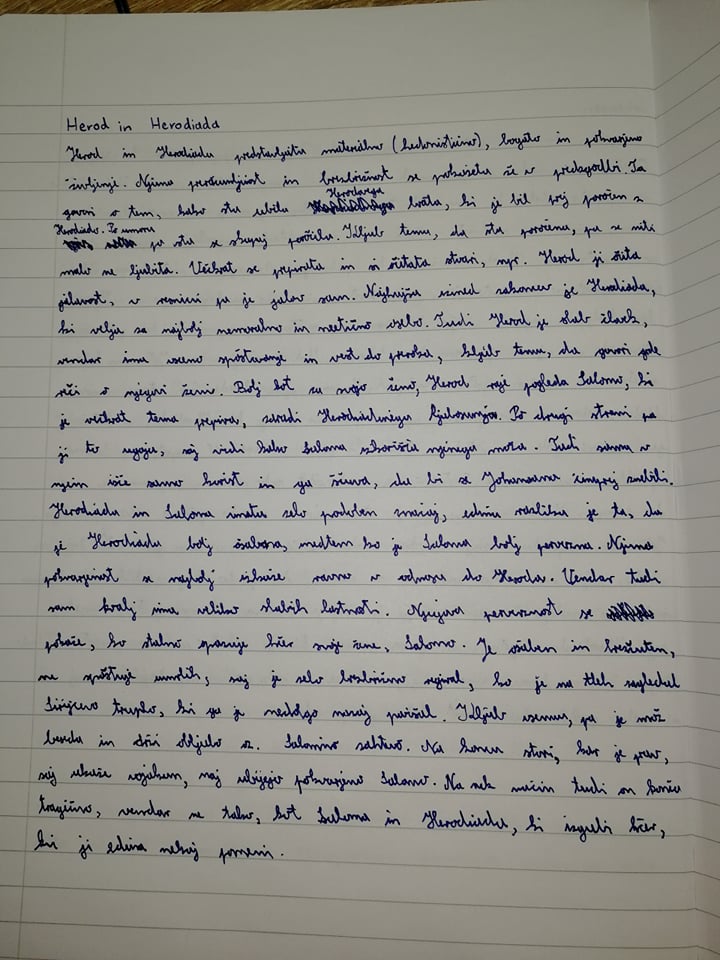 Herod in Herodiada
Herod in Herodiada predstavljata materialno (hedonistično), bogato in pokvarjeno
življenje. Njuna preračunljivost in brezbrižnost se pokažeta že v predzgodbi. Ta
govori o tem, kako sta ubila Herodovega brata, ki je bil prej poročen z
Herodiado. Po umoru pa sta se skupaj poročila. Kljub temu, da sta poročena, pa se niti
malo ne ljubita. Večkrat se prepirata in si očitata stvari, npr. Herod ji očita
jalovost, v resnici pa je jalov sam. Najhujša izmed zakoncev je Herodiada,
ki velja za najbolj nemoralno in neetično osebo. Tudi Herod je slab človek,
vendar ima vseeno spoštovanje in vest do preroka, kljub temu, da govori grde
reči o njegovi ženi. Bolj kot za svojo ženo, Herod raje pogleda Salomo, ki
je večkrat tema prepira, zaradi Herodiadinega ljubosumja. Po drugi strani pa
ji to ugaja, saj vidi kako Saloma izkorišča njenega moža. Tudi sama v
njem išče samo korist in ga ščuva, da bi se Johanaana čimprej znebili.
Herodiada in Saloma imata zelo podoben značaj, edina razlika je ta, da
je Herodiada bolj oblastna, medtem ko je Saloma bolj perverzna. Njuna
pokvarjenost se najbolj izkaže ravno v odnosu do Heroda. Vendar tudi
sam kralj ima veliko slabih lastnosti. Njegova perverznost se
pokaže, ko stalno opazuje hčer svoje žene, Salomo. Je oseben in brezčuten,
ne spoštuje umrlih, saj je zelo brezbrižno reagiral, ko je na tleh zagledal
Sirijčevo truplo, ki ga je nedolgo nazaj povišal. Kljub vsemu, pa je mož
beseda in drži obljubo oz. Salomino zahtevo. Na koncu stori, kar je prav,
saj ukaže vojakom, naj ubijejo pokvarjeno Salomo. Na nek način tudi on konča
tragično, vendar ne tako, kot Saloma in Herodiada, ki izgubi hčer,
ki ji edina nekaj pomeni.